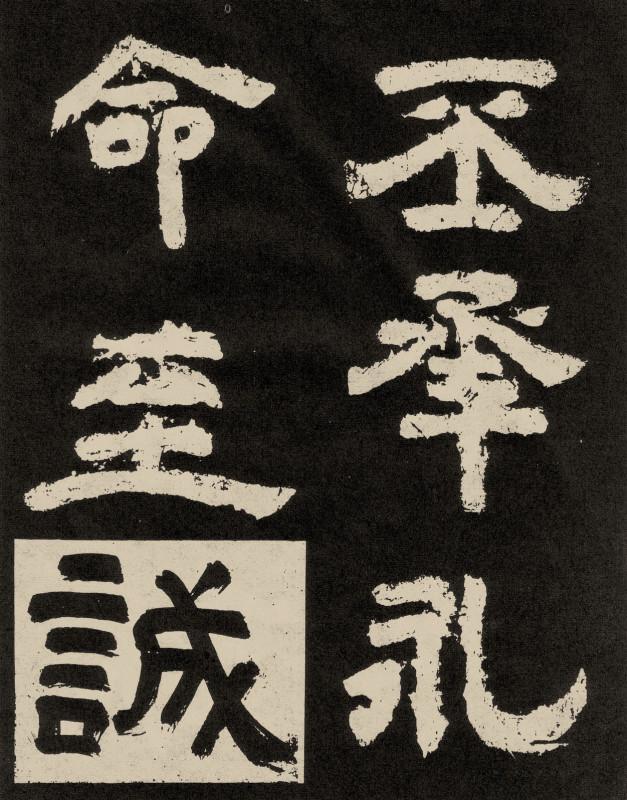 丕承礼
命至誠